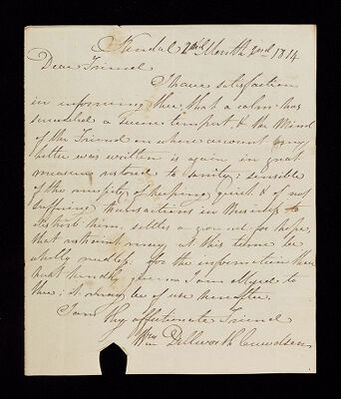 Kendal 2nd Month 2nd 1814
Dear Friend
I have satisfaction
in informing thee, that a calm has
succeeded a severe tempest, & the Mind
of the Friend on whose account my
letter was written is again in great
measure restored to sanity; sensible
of the necessity of keeping quiet & of not
suffering transactions in this
disturb him, settles a ground for hope,
that restraint may at this time be
wholly needless. for the information thou
hast kindly given me I am obliged to
thee; it may be of use hereafter.
I am
Thy affectionate Friend
Wm Dillworth Crewdson